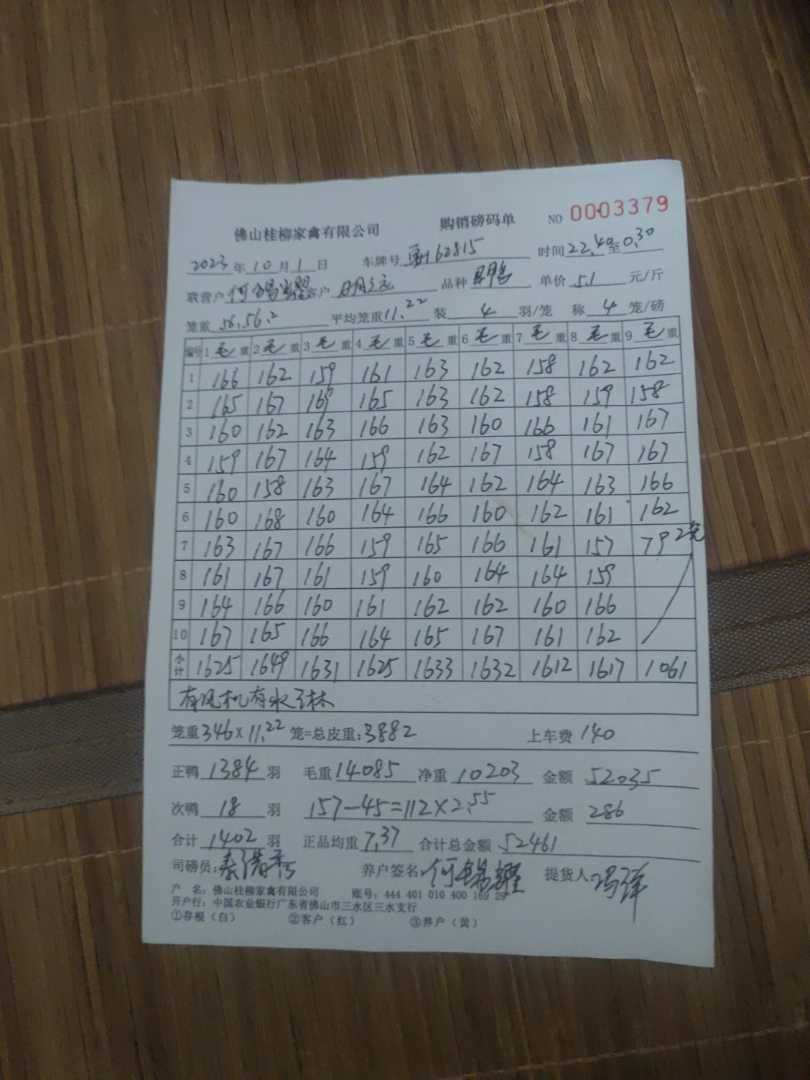 佛山桂柳家禽有限公司 购销磅码单 NO 0003379
2023年10月1日 车牌号 62815 时间22.40至0.30
联营户 何锡耀 客户 品种 单价 5.1 元/斤
笼重 56,56.2 平均笼重11.22 装 4 羽/笼 称 4 笼/磅
编号 1毛重 2毛重 3毛重 4毛重 5毛重 6毛重 7毛重 8毛重 9毛重
1 166 162 159 161 163 162 158 162 162
2 165 167 169 165 163 162 158 159 158
3 160 162 163 166 163 160 166 161 167
4 159 167 164 159 162 167 158 167 167
5 160 158 163 167 164 162 164 163 166
6 160 168 160 164 166 160 162 161 162
7 163 167 166 159 165 166 161 157 79 2笼
8 161 167 161 159 160 164 164 159
9 164 166 160 161 162 162 160 166
10 167 165 166 164 165 167 161 162
合计 1625 1649 1631 1625 1633 1632 1612 1617 1061
有风机有水
笼重346×11.22笼=总皮重:3882 上车费 140
正鸭 1384 羽 毛重 14085 净重 10203 金额 52035
次鸭 18 羽 157-45=112×2.55 金额 286
合计 1402 羽 正品均重 7.37 合计总金额 52461
司磅员: 养户签名: 何锡耀 提货人
户 名: 佛山桂柳家禽有限公司 账号: 444 401 010 400 169 29
开户行: 中国农业银行广东省佛山市三水区三水支行
①存根（白） ②客户（红） ③养户（黄）